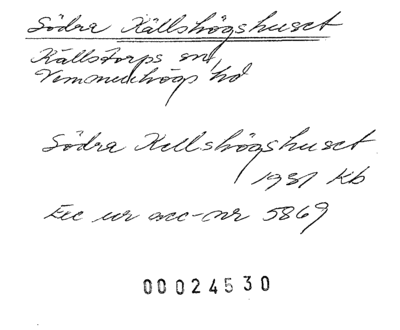 Södra Källshögshuset
Källstorps sn,
Vemmenhögs hd
Södra Kellshögshuset
1931 Kb
Exc ur acc-nr 5869
00024530